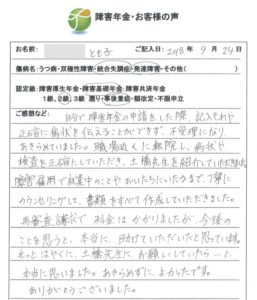 障害年金・お客様の声
お名前: とも子 ご記入日: 2018年 9月 24日
傷病名: うつ病・双極性障害・統合失調症・発達障害・その他( )
認定級: 障害厚生年金・障害基礎年金・障害共済年金
1級、2級、3級 遡り・事後重症・額改定・不服申立
ご感想など: 自分で障害年金の申請をした際、記入もれや
正確に病状を伝えることができず、不受理になり
あきらめていました。職場近くに転院し、病状や
検査も正確にしていただき、土橋先生を紹介していただきました。
障害雇用で就業中のことやおいたちにいたるまで、丁寧に
カウンセリングして、書類もすべて作成していただきました。
再審査請求で料金はかかりましたが、今後の
ことを思うと、本当に助けていただいたと思っています。
もっとはやくに、土橋先生に、お願いしていたら…と
本当に思いました。あきらめずに、よかったです。
ありがとうございました。